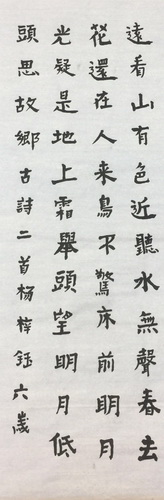 遠看山有色近聽水無聲春去
花還在人來鳥不驚床前明月
光疑是地上霜舉頭望明月低
頭思故鄉古詩二首杨梓鈺六歲